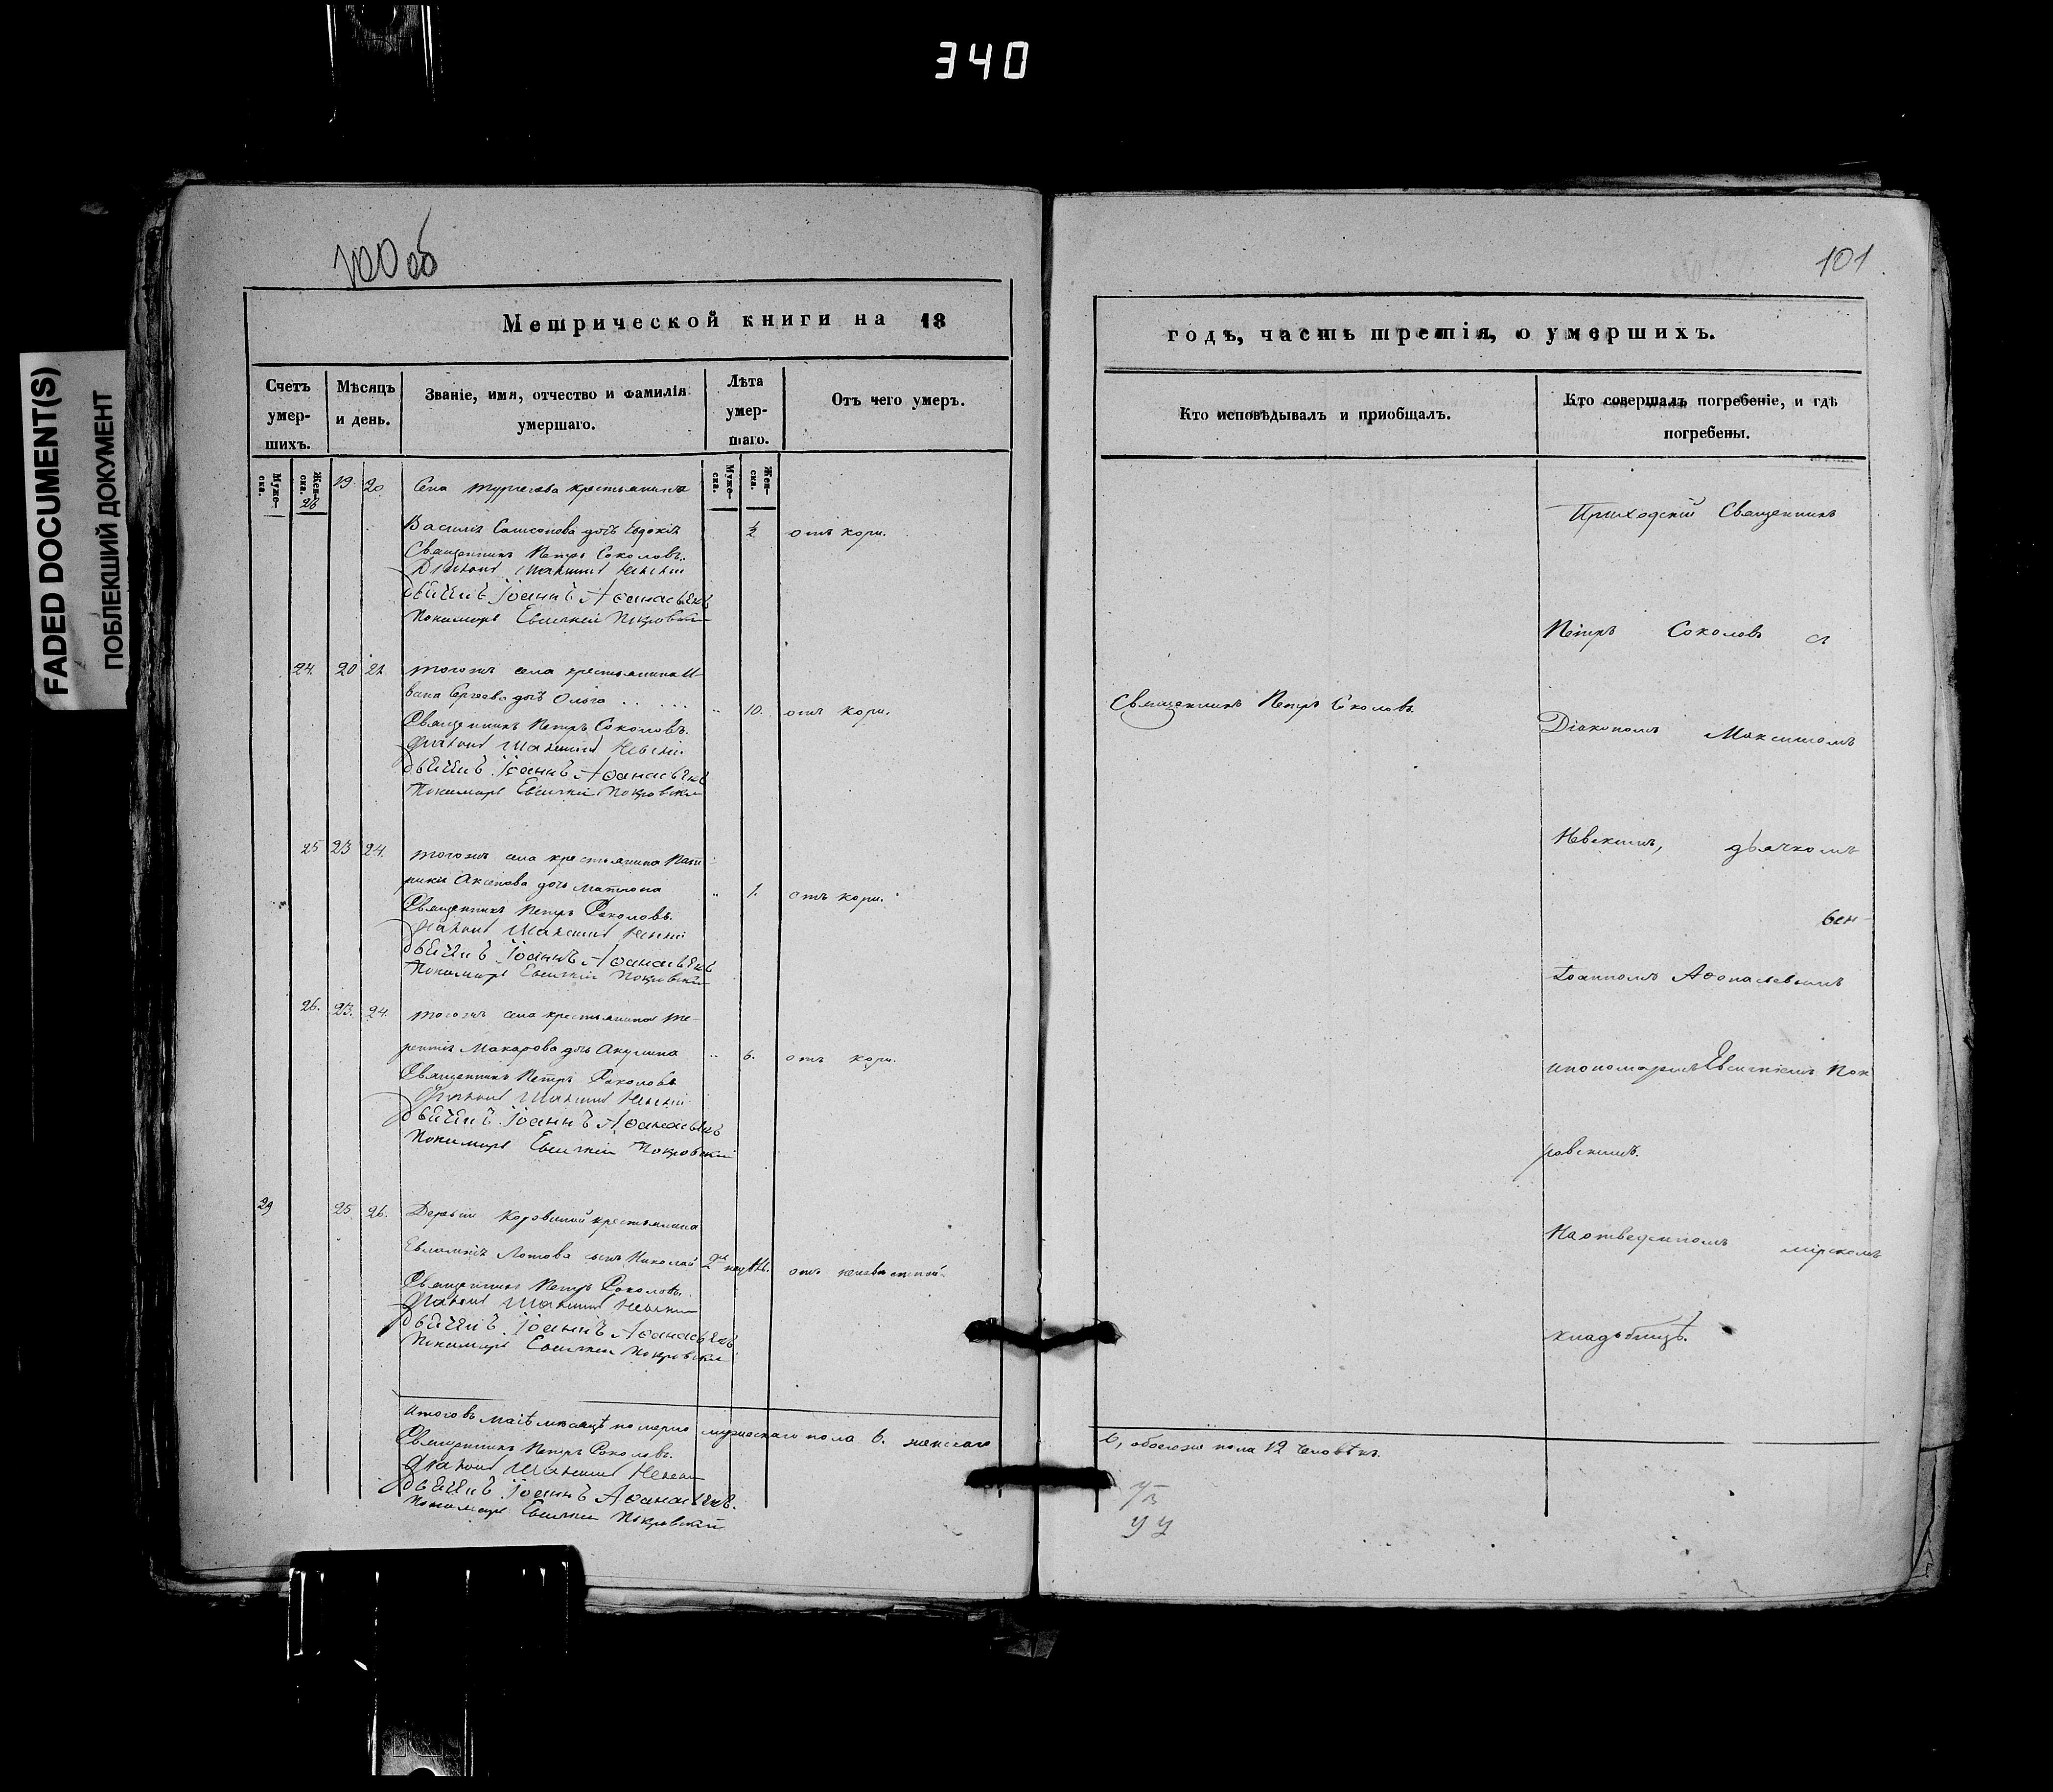 340
FADED DOCUMENT(S)
ПОБЛЕКШИЙ ДОКУМЕНТ
100 об
Метрической книги на 18
Счетъ умер-шихъ.
Мѣсяцъ и день.
Званіе, имя, отчество и фамилія умершаго.
Лѣта умер-шаго.
Отъ чего умеръ.
Муже-ска.
Жен-ска.
Муже-ска.
Жен-ска.
19. 20. Села крестьянина
Василія Самсонова дочь Евдокія ½ отъ кори.
Священникъ Петръ Соколовъ.
Діаконъ Максимъ Невскій
Дьячекъ Іоаннъ Аѳанасьевъ
Пономарь Евсигній Покровскій
24. 20 21 тогожъ села крестьянина И-
вана Сергеева дочь Ольга . . . . . „ 10. отъ кори.
Священникъ Петръ Соколовъ.
Діаконъ Максимъ Невскій
Дьячекъ Іоаннъ Аѳанасьевъ
Пономарь Евсигній Покровскій
25 23 24. тогожъ села крестьянина Пат
рикія Аксенова дочь Матрона „ 1. отъ кори.
Священникъ Петръ Соколовъ.
Діаконъ Максимъ Невскій
Дьячекъ Іоаннъ Аѳанасьевъ
Пономарь Евсигній Покровскій
26. 23. 24. тогожъ села крестьянина Те-
рентія Макарова дочь Акулина „ 6. отъ кори.
Священникъ Петръ Соколовъ
Діаконъ Максимъ Невскій
Дьячекъ Іоаннъ Аѳанасьевъ
Пономарь Евсигній Покровскій
29 25 26. Деревни крестьянина
Евлампія сынъ Николай 2хъ нед. отъ
Священникъ Петръ Соколовъ.
Діаконъ Максимъ Невскій
Дьячекъ Іоаннъ Аѳанасьевъ.
Пономарь Евсигній Покровскій
Итого въ Маіѣ мѣсяцѣ померло мужескаго пола 6. женскаго
Священникъ Петръ Соколовъ.
Діаконъ Максимъ Невскій
Дьячекъ Іоаннъ Аѳанасьевъ.
Пономарь Евсигній Покровскій
101
годъ, часть третія, о умершихъ.
Кто исповѣдывалъ и приобщалъ.
Кто совершалъ погребеніе, и гдѣ погребены.
Приходскій Священникъ
Петръ Соколовъ съ
Священникъ Петръ Соколовъ.
Діакономъ Максимомъ
Невскимъ, дьячкомъ
Іоанномъ Аѳонасьевымъ
и пономаремъ Евсигніемъ Пок
ровскимъ.
На отведенномъ мірскомъ
кладъбищѣ.
6, обоегожъ пола 12 человѣкъ.